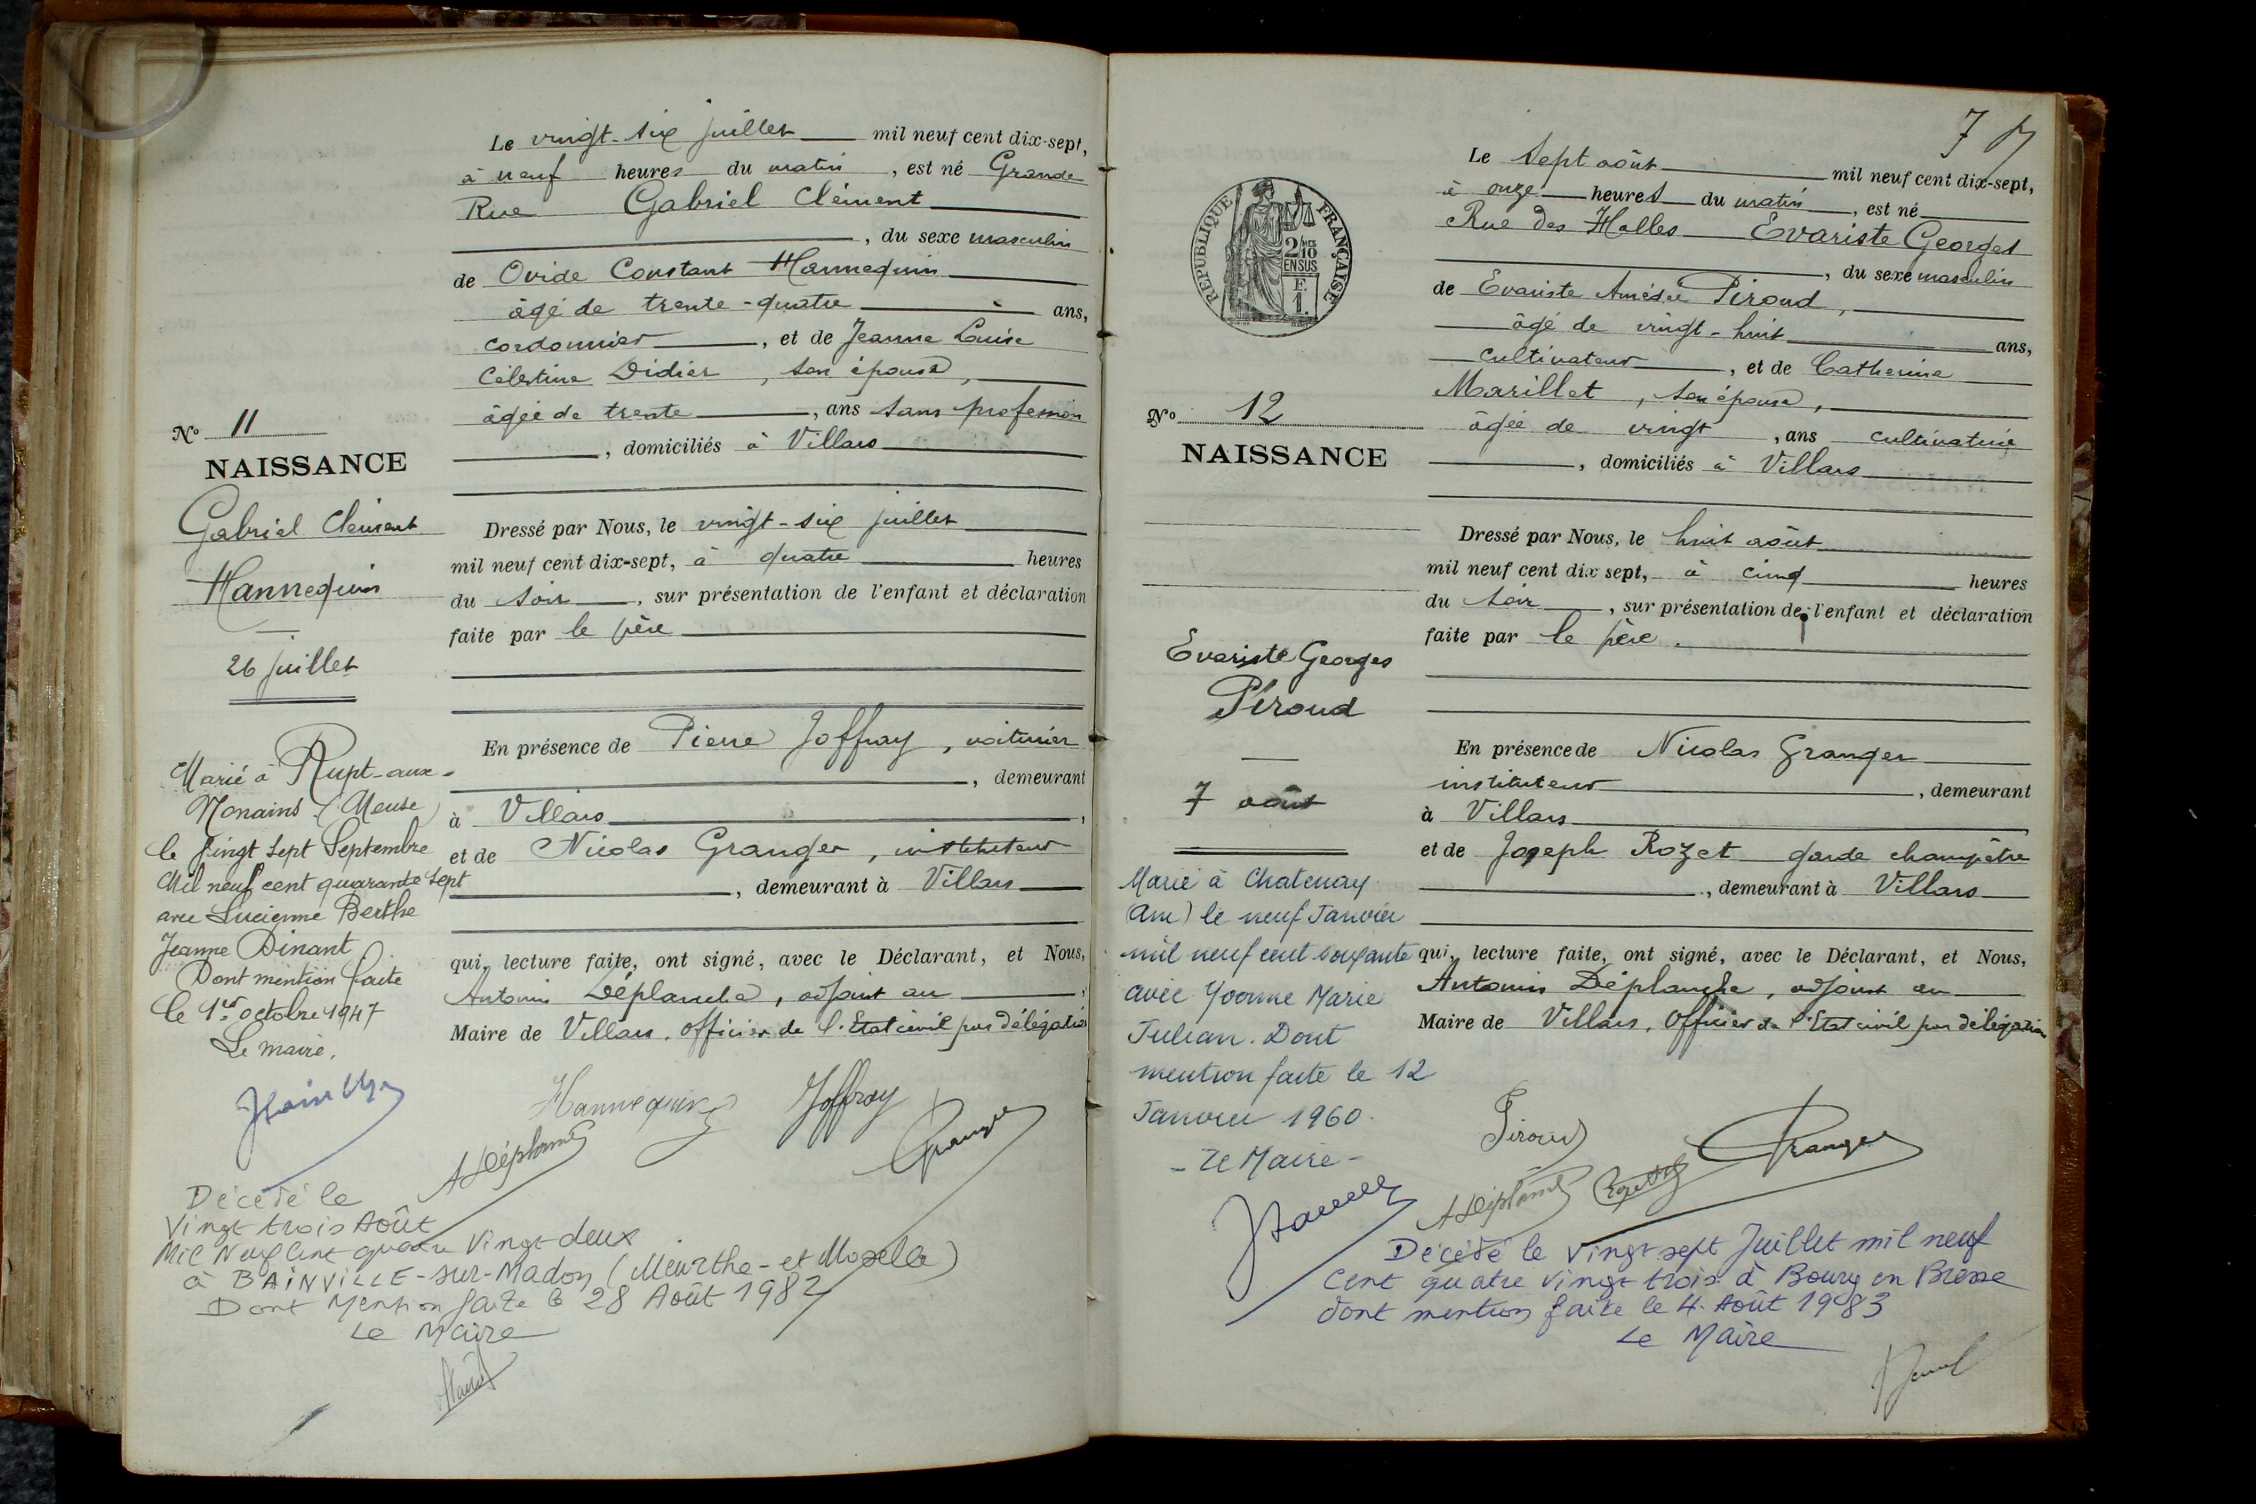 Le vingt-six juillet mil neuf cent dix-sept,
à neuf heures du matin, est né Grande
Rue Gabriel Clément
, du sexe masculin
de Ovide Constant Hannequin
âgé de trente-quatre ans,
cordonnier, et de Jeanne Luise
Célestine Didier, son épouse,
âgée de trente, ans sans profession
, domiciliés à Villars
Nº 11
NAISSANCE
Gabriel Clément
Hannequin
26 juillet
Dressé par Nous, le vingt-six juillet
mil neuf cent dix-sept, à quatre heures
du soir, sur présentation de l'enfant et déclaration
faite par le père
En présence de Pierre Joffray, voiturier
, demeurant
à Villars,
et de Nicolas Granger, instituteur
, demeurant à Villars
qui, lecture faite, ont signé, avec le Déclarant, et Nous,
Antonin Déplanche, adjoint au,
Maire de Villars, officier de l'Etat civil par délégation
Marié à Rupt-aux-
Nonains (Meuse)
le Vingt sept Septembre
Mil neuf cent quarante sept
avec Lucienne Berthe
Jeanne Dinant
Dont mention faite
le 1er octobre 1947
Le maire,
Hannequin
Joffray
ADéplanche
Granger
Décédé le
Vingt trois Août
Mil Neuf Cent quatre Vingt deux
à BAINVILLE-sur-Madon (Meurthe-et-Moselle)
Dont Mention faite le 28 Août 1982
Le Maire
7
RÉPUBLIQUE FRANÇAISE
2/10
EN SUS
F.
1.
Le Sept août mil neuf cent dix-sept,
à onze heures du matin, est né
Rue des Halles Evariste Georges
, du sexe masculin
de Evariste Amédée Piroud,
âgé de vingt-huit ans,
cultivateur, et de Catherine
Marillet, son épouse,
âgée de vingt, ans cultivatrice
, domiciliés à Villars
Nº 12
NAISSANCE
Evariste Georges
Piroud
7 août
Dressé par Nous, le huit août
mil neuf cent dix sept, à cinq heures
du soir, sur présentation de l'enfant et déclaration
faite par le père.
En présence de Nicolas Granger
instituteur, demeurant
à Villars
et de Joseph Rozet garde champêtre
, demeurant à Villars
qui, lecture faite, ont signé, avec le Déclarant, et Nous,
Antonin Déplanche, adjoint au
Maire de Villars, Officier de l'Etat civil par délégation
Marié à Chatenay
(Ain) le neuf Janvier
mil neuf cent soixante
avec Yvonne Marie
Julian. Dont
mention faite le 12
Janvier 1960.
- Le Maire -
Piroud
Granger
ADéplanche
Décédé le vingt sept Juillet mil neuf
Cent quatre vingt trois à Bourg en Bresse
dont mention faite le 4 Août 1983
Le Maire